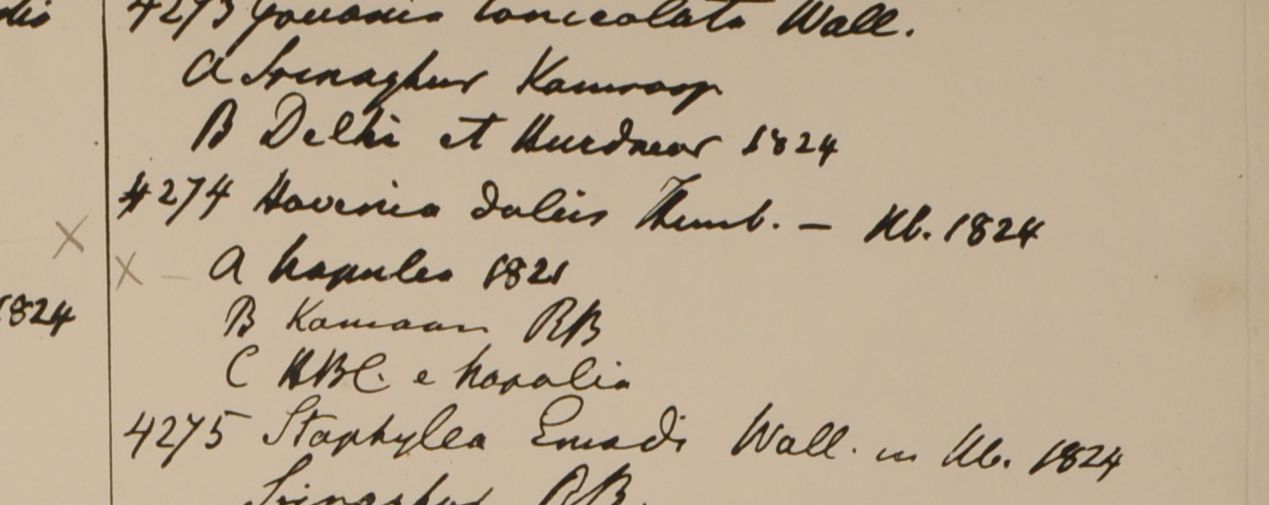 4273 Gouania lanceolata Wall.
A Srinaghur Kamroop
B Delhi et Hurdwar 1824
4274 Hovenia dulcis Thunb. – Hb. 1824
A Napalia 1821
B Kamaon RB
C HBC. e Napalia
1824
4275 Staphylea Emodi Wall. in Hb. 1824
Srinaghur RB.